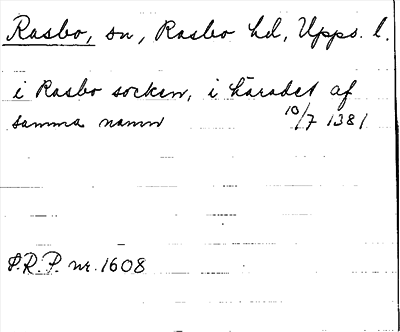 Rasbo, sn, Rasbo hd, Upps. l.
i Rasbo socken, i häradet af
samma namn 10/7 1381
P.R.P. nr. 1608